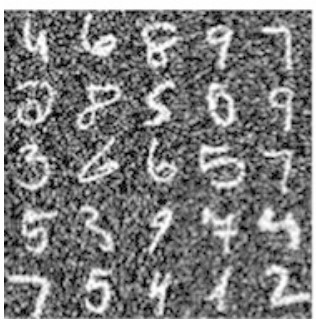 4 6 8 9 7
2 8 5 0 9
3 6 6 5 7
5 3 9 7 4
7 5 4 1 2